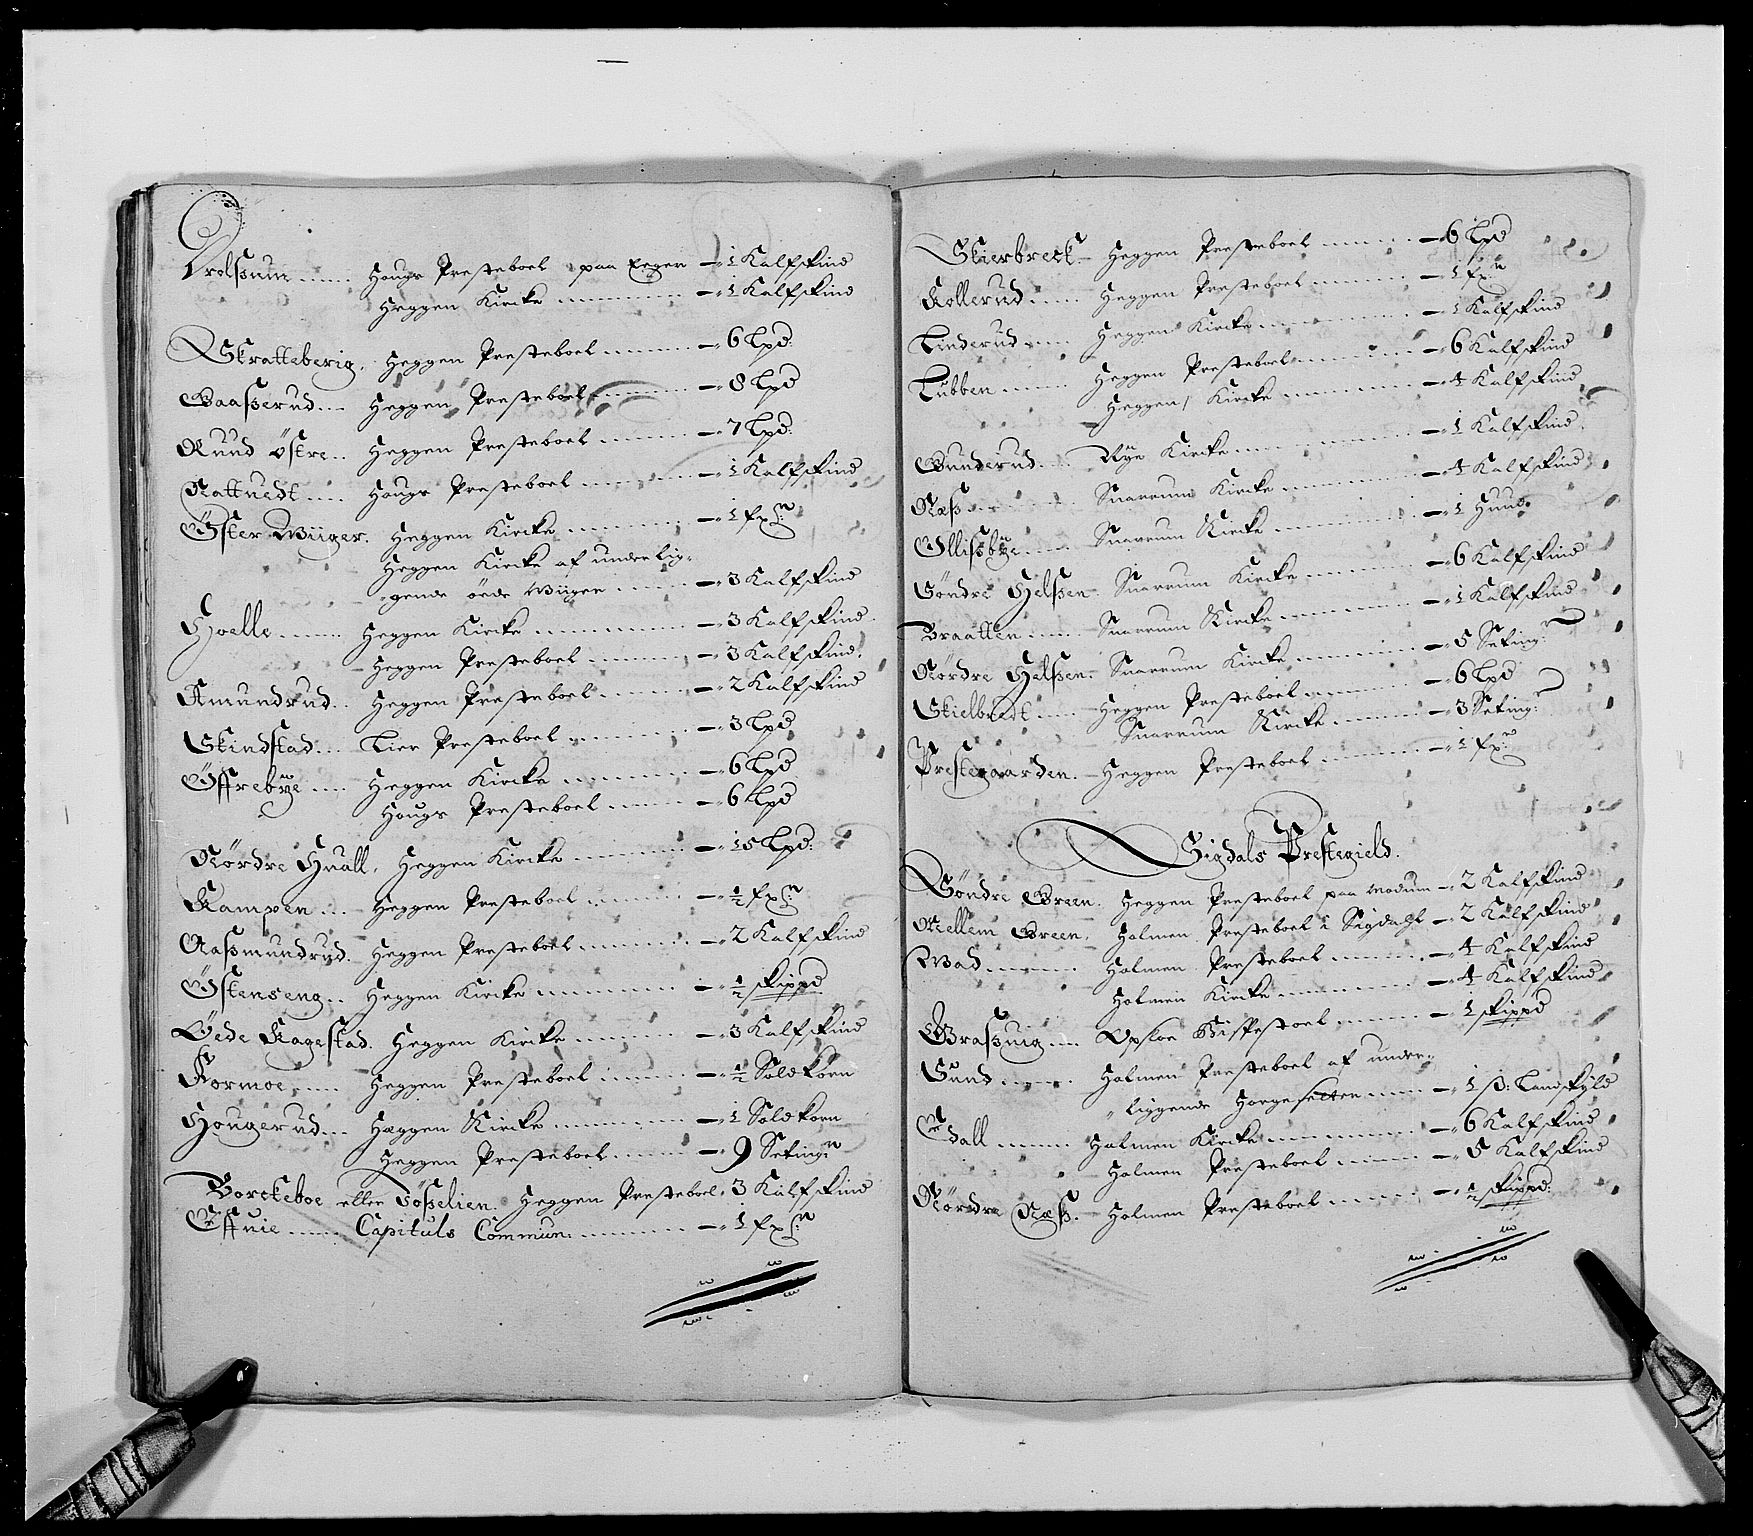 Drolßum ...... Hougs Presteboel paa Eeger — 1 Kalfskind
Heggen Kircke ............ — 1 Kalfskind
Skratteberig. Heggen Presteboel ........ — 6 Lpd:
Baaßerud .... Heggen Presteboel ........ — 8 Lpd
Ruud östre .. Heggen Presteboel ........ — 7 Lpd:
Nattuedt .... Hougs Presteboel ........ — 1 Kalfskind
Öster Wiiger. Heggen Kircke ........ — 1 fx:
Heggen Kircke af underlig-
gende öede Wiiger ..... — 3 Kalfskind
Hoelle ....... Heggen Kircke ............ — 3 Kalfskind.
Heggen Presteboel ........ — 3 Kalfskind.
Amundrud .. Heggen Presteboel ....... — 2 Kalfskind
Skindstad ... Lier Presteboel ......... — 3 Lpd
Öffrebye .... Heggen Kircke ......... — 6 Lpd
Hougs Presteboel ...... — 6 Lpd
Nördre Huall. Heggen Kircke ........ — 15 Lpd:
Kampen .... Heggen Presteboel ....... — ½ fx:
Aaßmundrud. Heggen Presteboel ........ — 2 Kalfskind
Östenseng .. Heggen Kircke .......... — ½ skippd
Öede Kagestad. Heggen Kircke ....... — 3 Kalfskind
Formoe ..... Heggen Presteboel ....... — ½ Soldkorn
Hougerud ... Heggen Kircke ......... — 1 Soldkorn
Heggen Presteboel ...... — 9 Seting:
Borckeboe eller Lößelien. Heggen Presteboel. 3 Kalfskind
Effuie ...... Capituls Commun: ........ — 1 fx:
Skierbreck — Heggen Presteboel ........ — 6 Lpd
Kollerud ..... Heggen Presteboel ....... — 1 fx:
Linderud ..... Heggen Kircke .......... — 1 Kalfskind
Lubben ....... Heggen Presteboel ........ — 6 Kalfskind
Heggen Kircke ......... — 4 Kalfskind
Gunderud .... Nye Kircke ............ — 1 Kalfskind.
Næß ......... Snarrum Kircke ......... — 4 Kalfskind
Ollißbye ..... Snarrum Kircke ......... — 1 Huud.
Söndre Helßen — Snarrum Kircke ....... — 6 Kalfskind
Braatten ..... Snarrum Kircke ......... — 1 Kalfskind
Nördre Helßen. Snarrum Kircke ....... — 5 Seting:
Skielbredt .... Heggen Presteboel ........ — 6 Lpd
Snarrum Kircke ....... — 3 Seting:
Prestegaarden. Heggen Presteboel ....... — 1 fx:
Sigdals Prestegield.
Söndre Green. Heggen Presteboel paa Modum — 2 Kalfskind
Mellem Green. Holmen Presteboel i Sigdahl — 2 Kalfskind
Wad ........ Holmen Presteboel ....... — 4 Kalfskind
Holmen Kircke ......... — 4 Kalfskind
Graßuig .... Opsloe Bispestoel ....... — 1 skippd
Sund ....... Holmen Presteboel af under-
liggende Horgesetter ...... — 1 ß: Landskyld
Edall ........ Holmen Kircke .......... — 6 Kalfskind
Holmen Presteboel ....... — 5 Kalfskind
Nördre Næß. Holmen Presteboel ........ — ½ skippd: